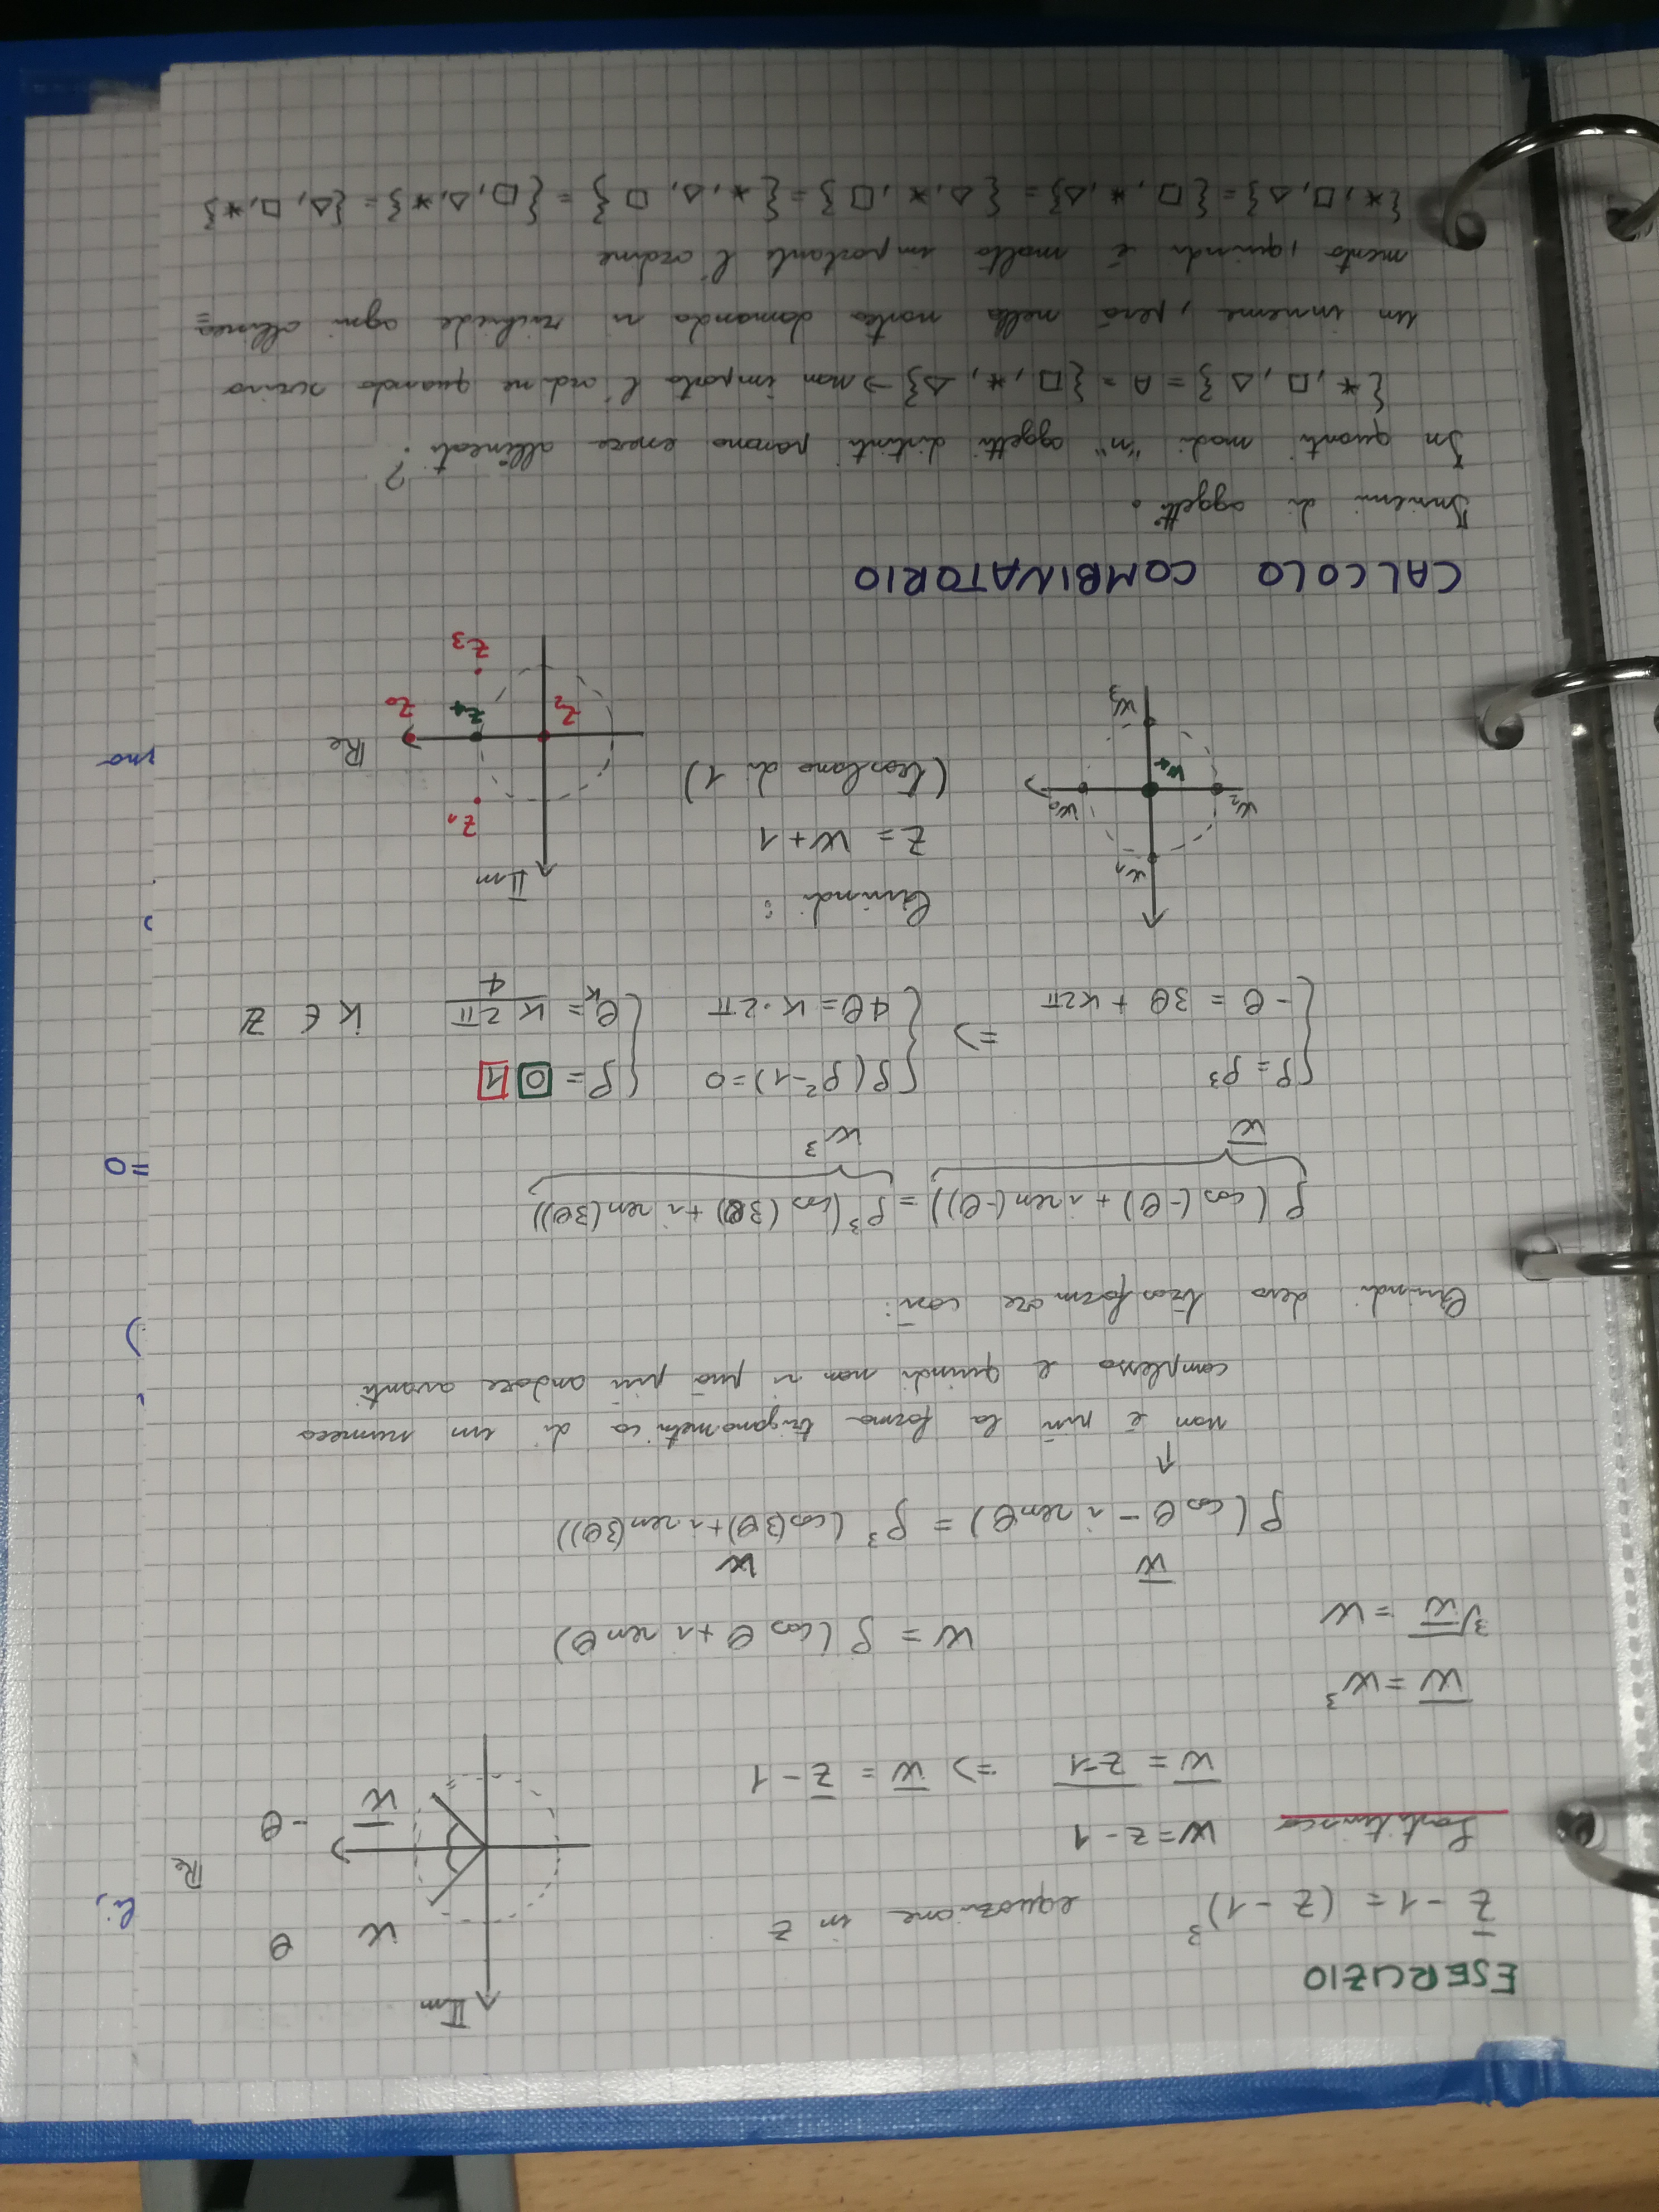 ESERCIZIO
z̅ - 1 = (z - 1)³ equazione in z
Sostituisco w = z - 1
w̅ = \overline{z-1} => w̅ = z̅ - 1
IIm
w θ
Re
w̅ -θ
w̅ = w³
∛w̅ = w w = ρ (cos θ + i sen θ)
w̅ w
ρ (cos θ - i sen θ) = ρ³ (cos(3θ) + i sen(3θ))
↑
non è più la forma trigonometrica di un numero
complesso e quindi non si può più andare avanti
Quindi devo trasformare così:
ρ (cos(-θ) + i sen(-θ)) = ρ³ (cos (3θ) + i sen(3θ))
w̅ w³
{ ρ = ρ³ => { ρ(ρ²-1) = 0 { ρ = 0 1
{ -θ = 3θ + k2π { 4θ = k·2π { θₖ = k 2π / 4 k ∈ Z
w₁
w₂ w₀
w₄
w₃
Quindi:
z = w + 1
(traslano di 1)
IIm
z₁
Re
z₂ z₄ z₀
z₃
CALCOLO COMBINATORIO
Insiemi di oggetti.
In quanti modi "n" oggetti distinti possono essere allineati?
{*, □, △} = A = {□, *, △} → non importa l'ordine quando scrivo
un insieme, però nella nostra domanda si richiede ogni allinea=
mento, quindi è molto importante l'ordine
{*, □, △} = {□, *, △} = {△, *, □} = {*, △, □} = {□, △, *} = {△, □, *}
li,
)
=0